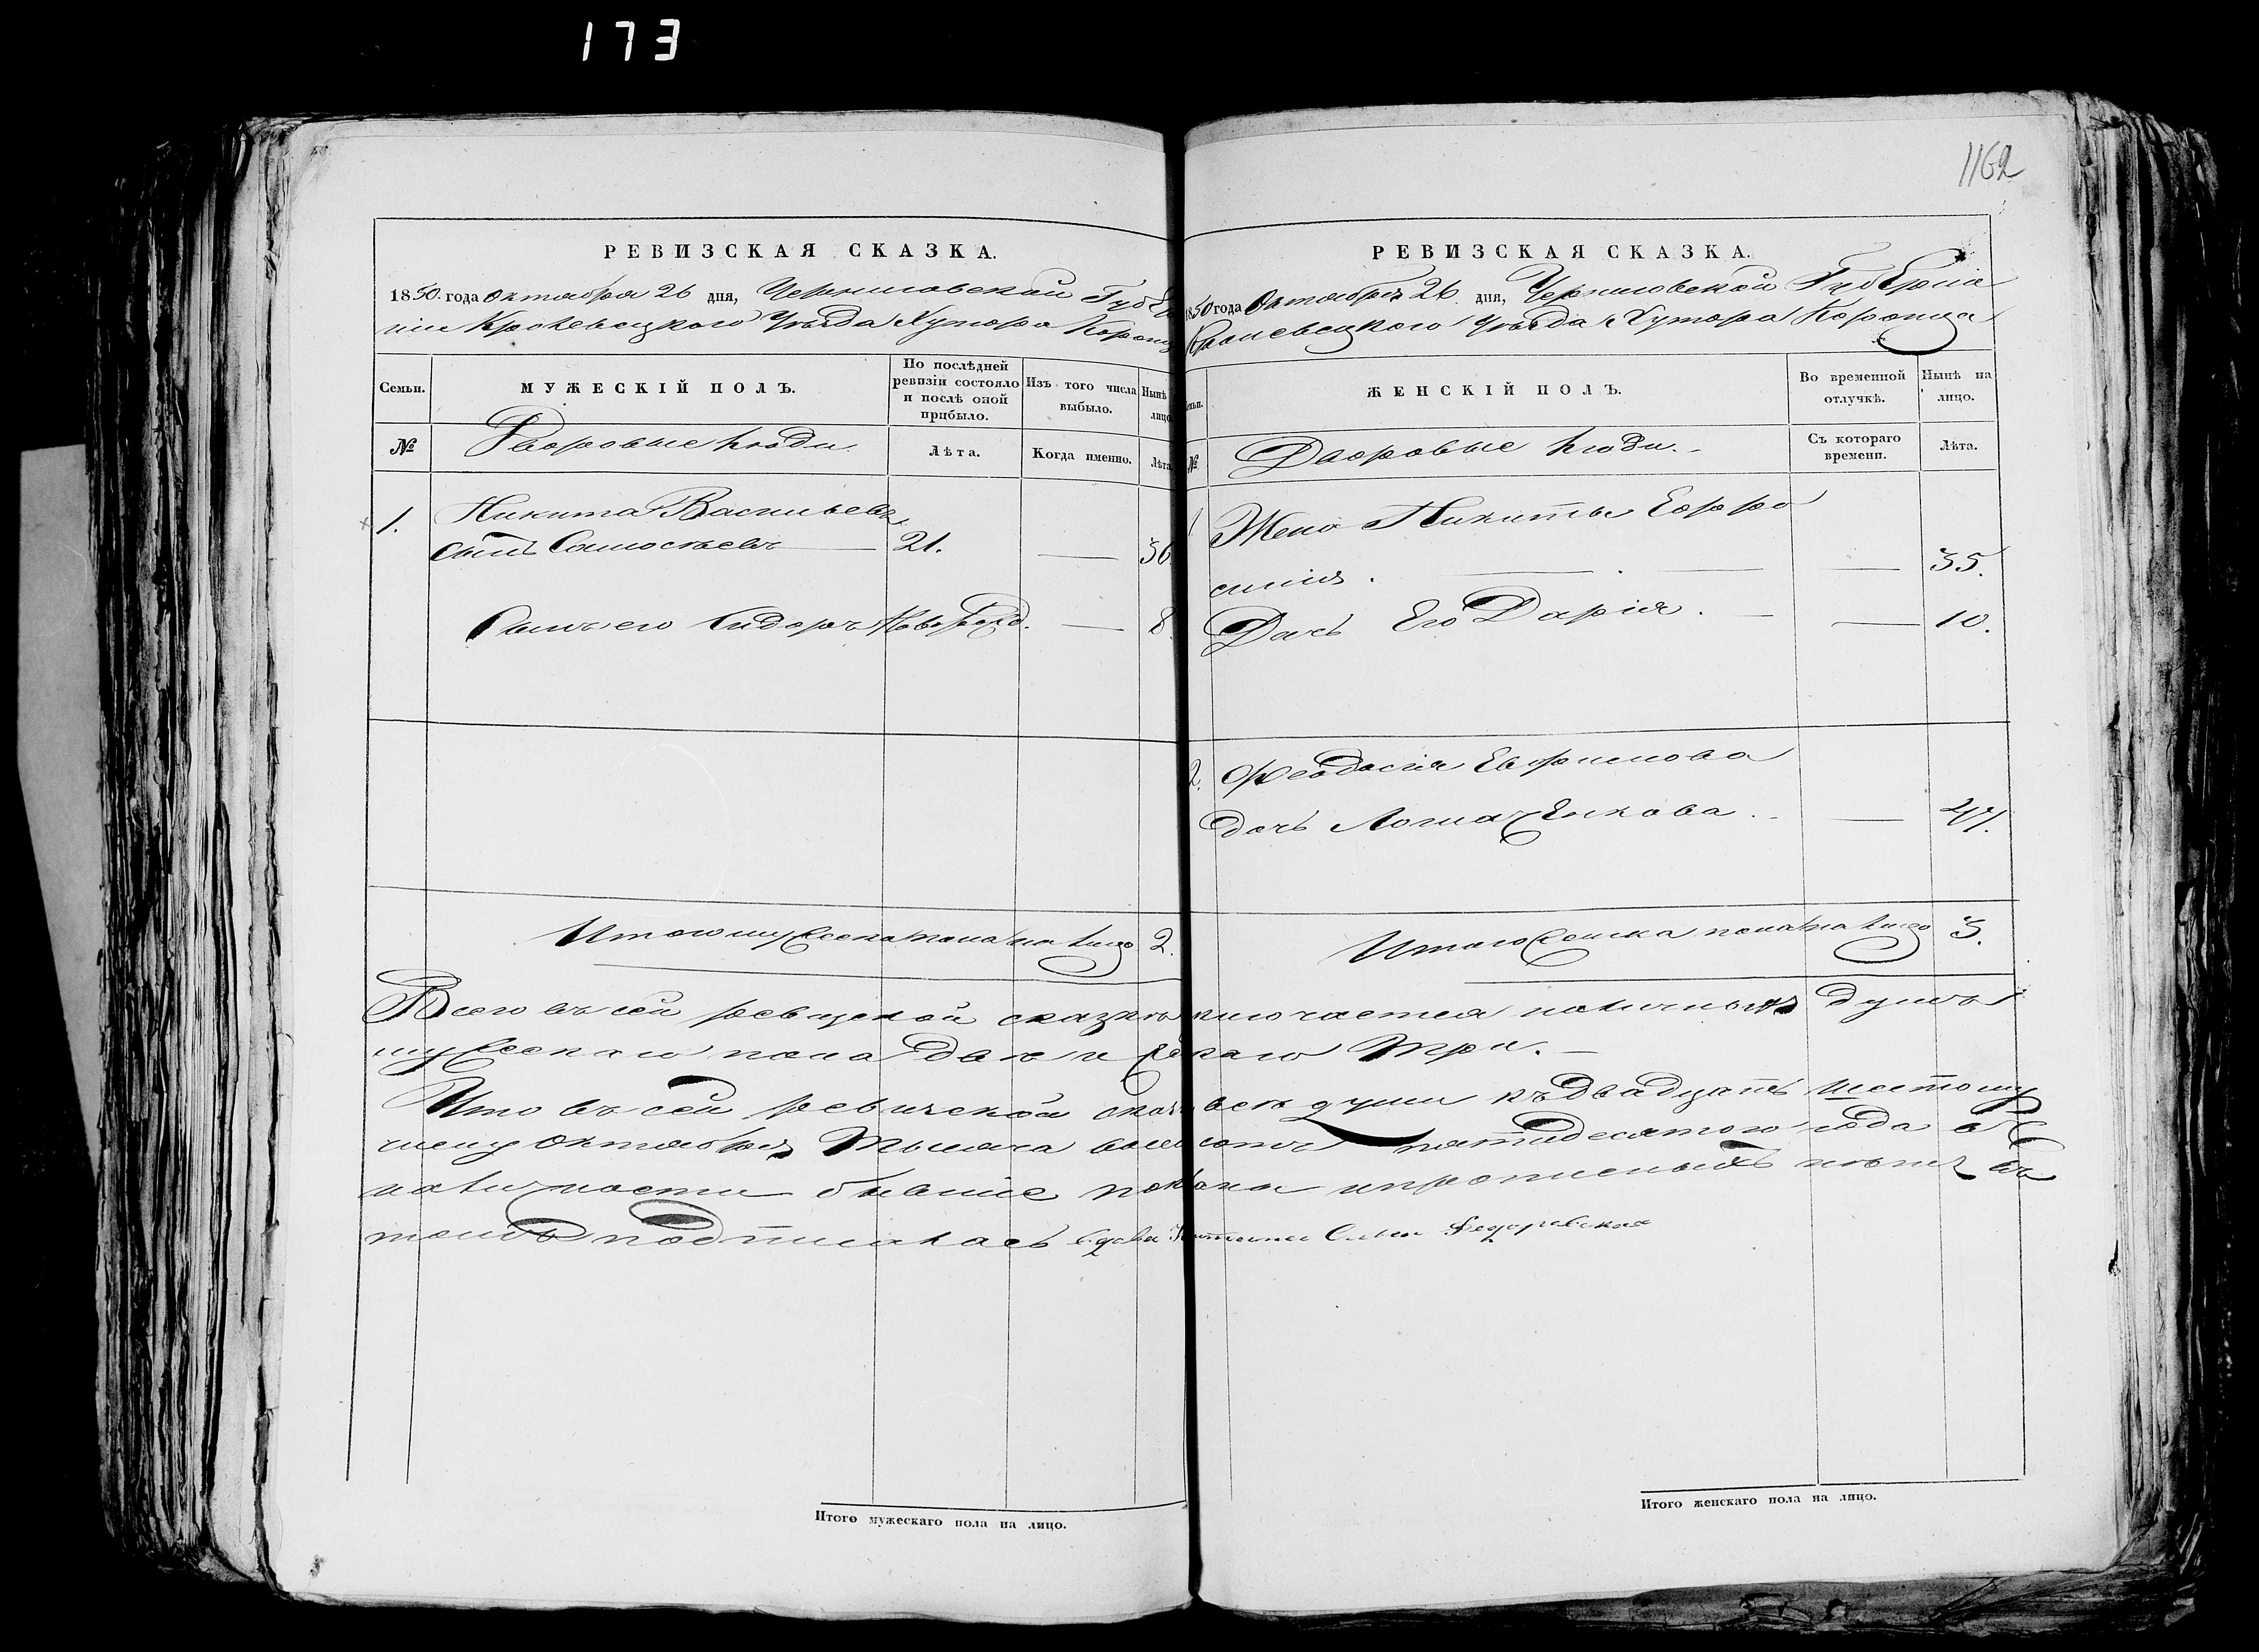 173
1162
РЕВИЗСКАЯ СКАЗКА.
1850. года Октября 26 дня, Черниговской Губер
ніи Кролевецкаго Уѣзда Хутора Короп
Семьи.
МУЖЕСКІЙ ПОЛЪ.
По послѣдней
ревизіи состояло
и послѣ оной
прибыло.
Изъ того числа
выбыло.
Нынѣ
лицо
№
Дворовые люди
Лѣта.
Когда именно.
Лѣта
1. Никита Васильевъ
сынъ 21. — 36
Сынъ его Сидоръ Новорожд. — 8
Итого мужеска пола на лицо 2.
РЕВИЗСКАЯ СКАЗКА.
1850 года Октября 26 дня, Черниговской Губерніи
Кролевецкаго Уѣзда Хутора
ЖЕНСКІЙ ПОЛЪ.
Во временной
отлучкѣ.
Нынѣ на
лицо.
№
Дворовые люди.
Съ котораго
времени.
Лѣта.
1 Жена Никиты Ефро
синія. — — 35.
Дочь Его Дарія. — — 10.
2. Феодосія Евфимова
дочь — 47.
Итого женска пола на лицо 3.
Всего въ сей ревизской сказкѣ наличныхъ душъ
мужескаго пола двѣ и женскаго три.
Что въ сей ревизской всѣ души къ двадцать шестому
Октября тысяча пятидесятого года в
наличности бывшіе и прописныхъ нѣтъ въ
томъ подписалась вдова Федоровская
Итого мужескаго пола на лицо.
Итого женскаго пола на лицо.